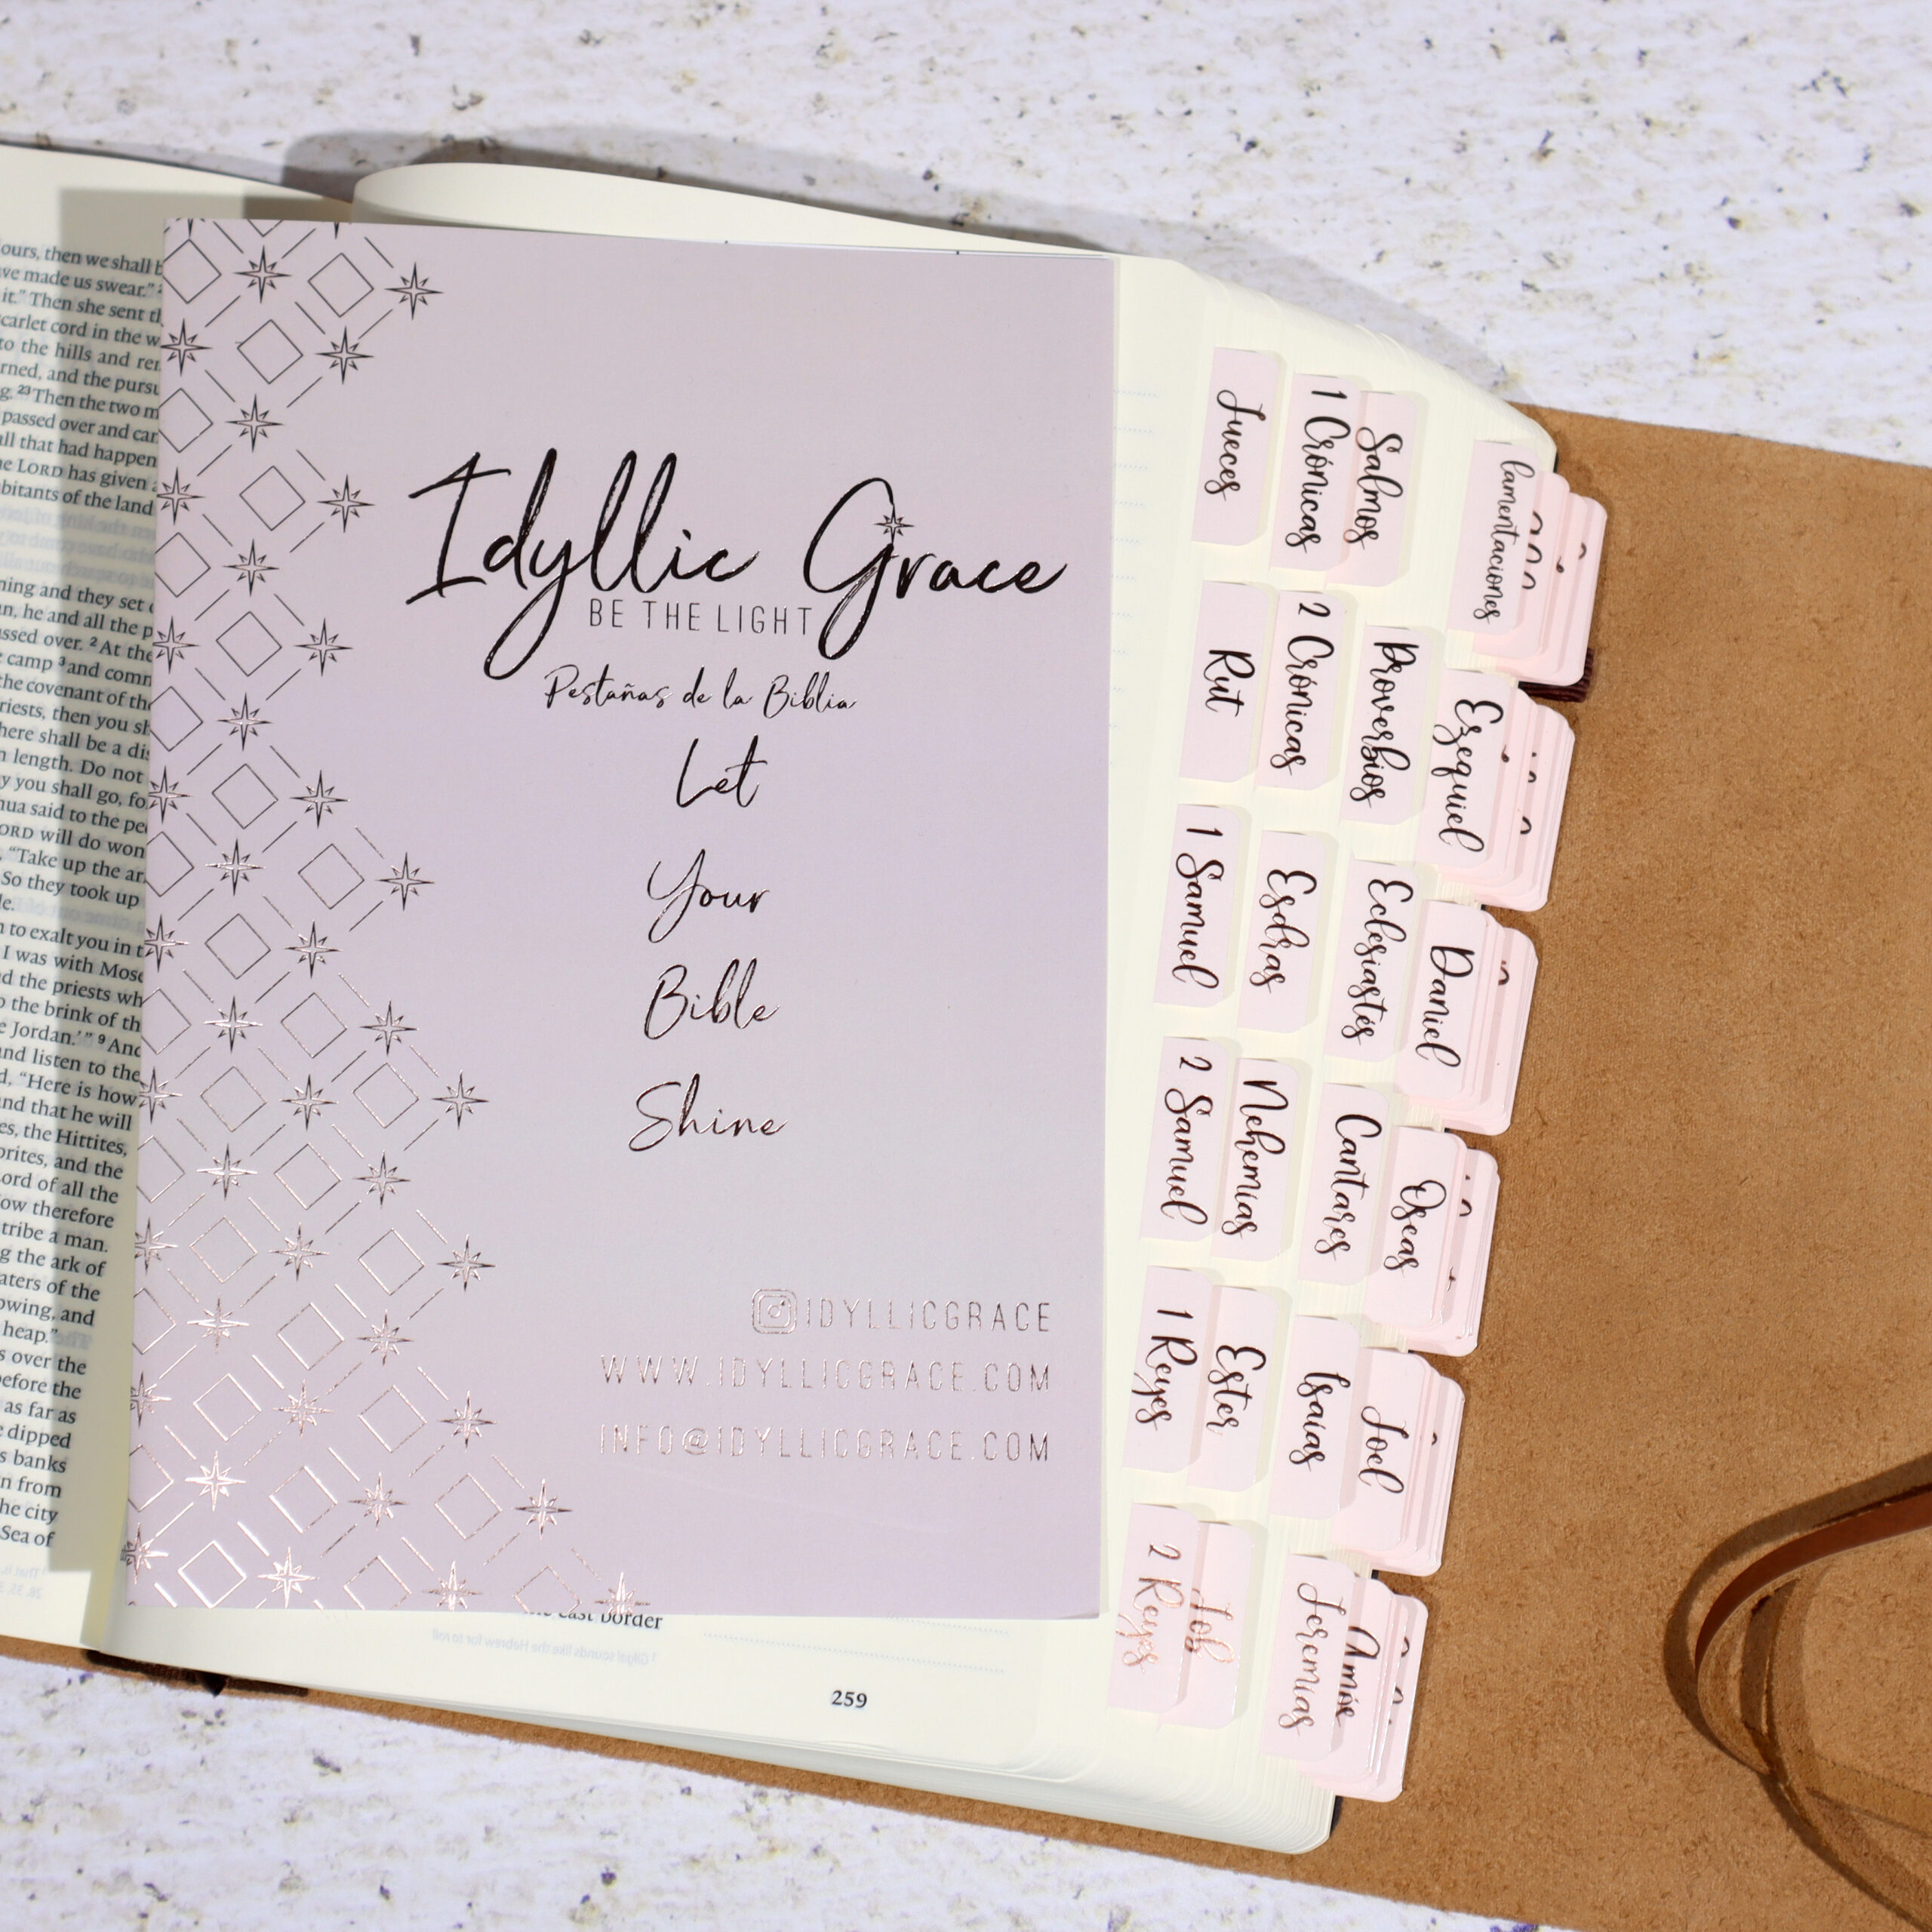 ours, then we shall b
ve made us swear."
it." Then she sent th
carlet cord in the w
to the hills and
rned, and the pursu
g. 23 Then the two m
passed over and
all that had happen
he LORD has given
bitants of the land
ning and they set
n, he and all the p
ssed over. 2 At the
camp 3 and comm
the covenant of the
riests, then you sh
here shall be a dis
n length. Do not
y you shall go, fo
hua said to the pe
ORD will do won
"Take up the ar
So they took up
le.
n to exalt you in t
I was with Mose
d the priests wh
o the brink of th
e Jordan.'" 9 And
nd listen to the
d, "Here is how
nd that he will
es, the Hittites,
orites, and the
ord of all the
ow therefore
tribe a man.
g the ark of
aters of the
owing, and
heap."
s over the
efore the
as far as
e dipped
s banks
n from
he city
Sea of
Idyllic Grace
BE THE LIGHT
Pestañas de la Biblia
Let
Your
Bible
Shine
IDYLLICGRACE
WWW.IDYLLICGRACE.COM
INFO@IDYLLICGRACE.COM
east border
259
Jueces
Rut
1 Samuel
2 Samuel
1 Reyes
2 Reyes
1 Crónicas
2 Crónicas
Esdras
Nehemías
Ester
Job
Salmos
Proverbios
Eclesiastés
Cantares
Isaías
Jeremías
Lamentaciones
Ezequiel
Daniel
Oseas
Joel
Amós